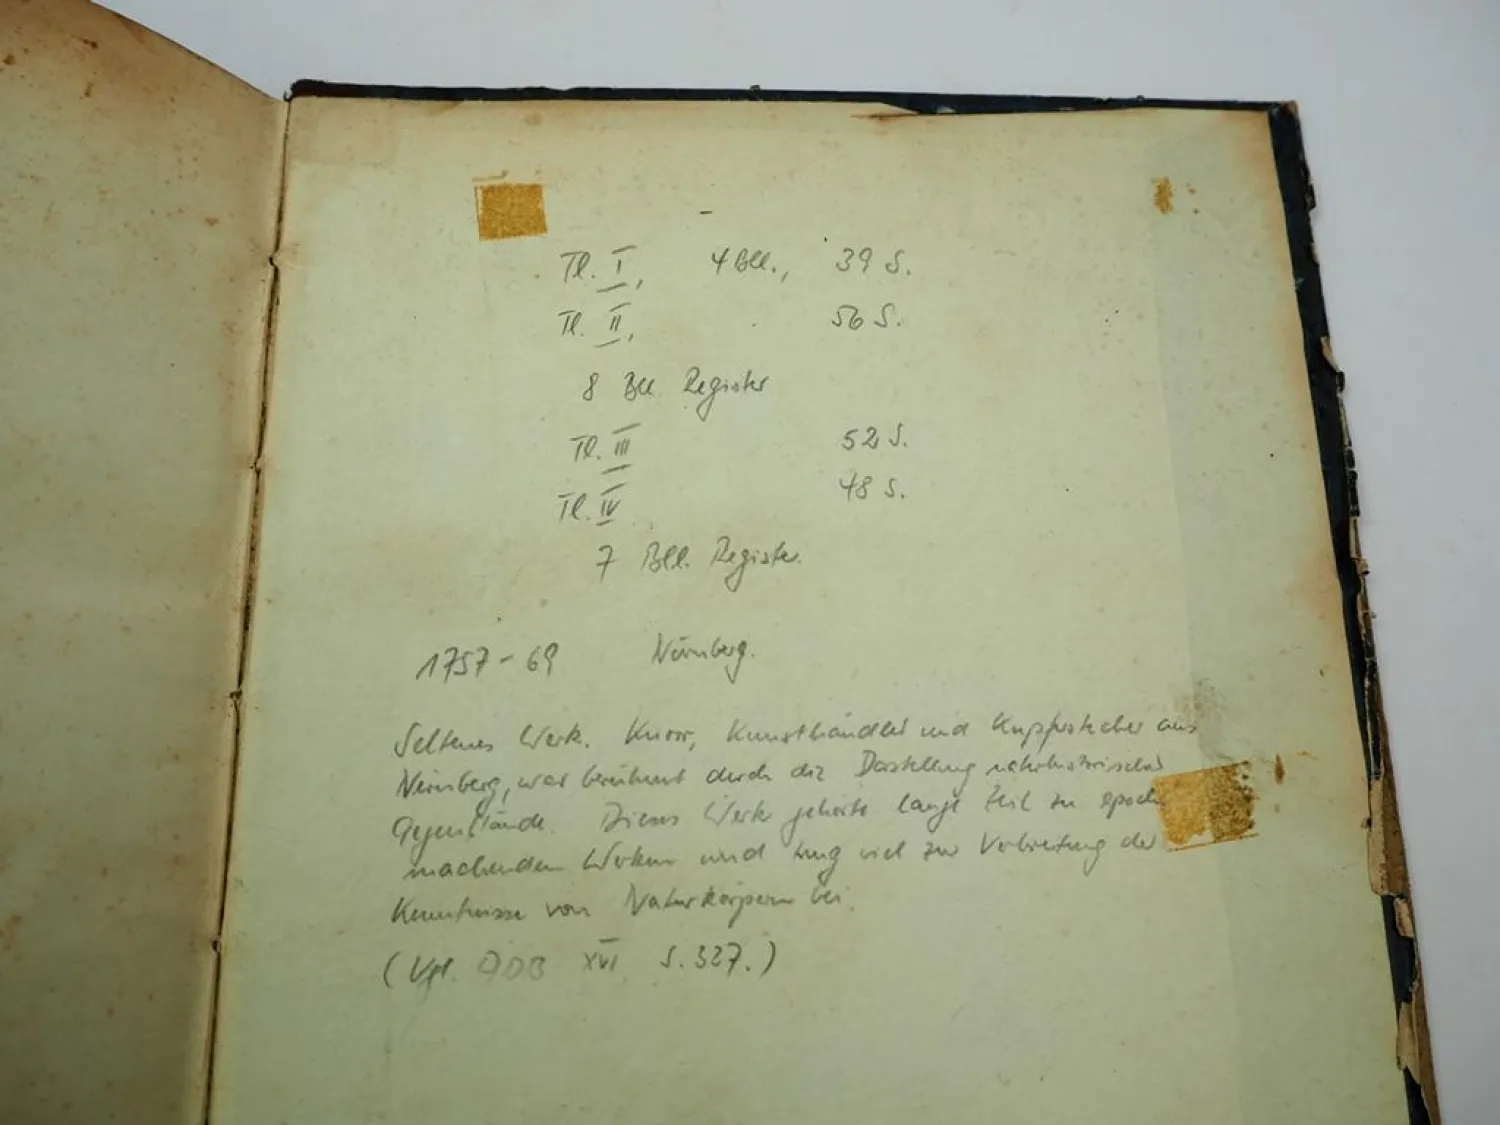 Tl. I, 4 Bll., 39 S.
Tl. II, 56 S.
8 Bll. Register
Tl. III 52 S.
Tl. IV 48 S.
7 Bll. Register.
1757-69 Nürnberg.
Seltenes Werk. Knorr, Kunsthändler und Kupferstecher aus
Nürnberg, war berühmt durch die Darstellung naturhistorischer
Gegenstände. Dieses Werk gehörte lange Zeit zu epoche
machenden Werken und trug viel zur Verbreitung der
Kenntnisse von Naturkörpern bei.
(Vgl. ADB XVI S. 327.)